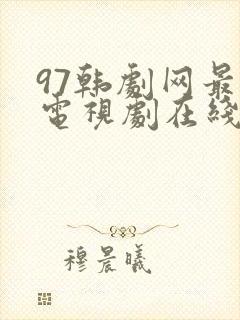 97韩劇网最
電視劇在綫
穆晨曦